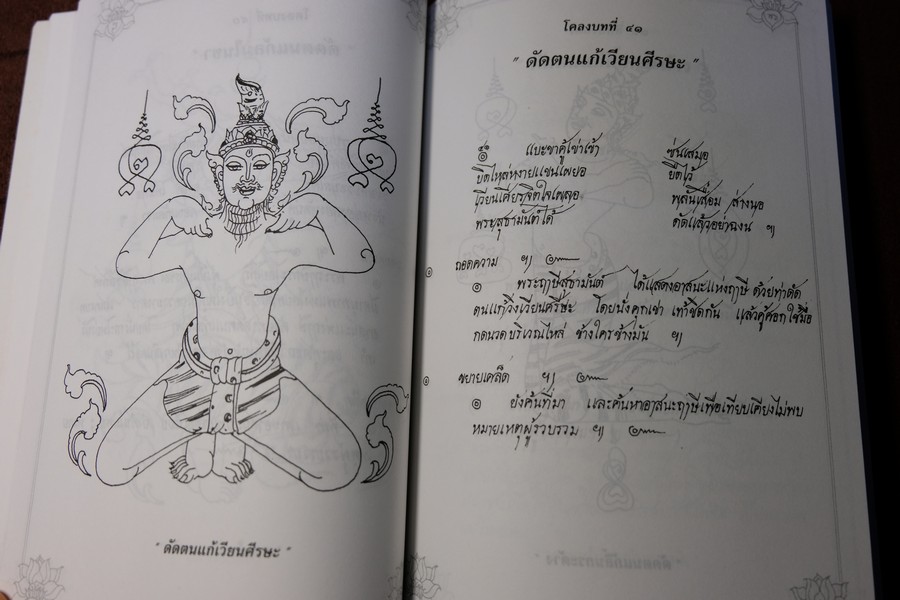 " ดัดตนแก้เวียนศีรษะ "
โคลงบทที่ ๔๑
" ดัดตนแก้เวียนศีรษะ "
๏ แบะขาคู้เข่าเข้า ซ่นเสมอ
ยึดไหล่หงายแขนเผยอ ยืดไว้
เวียนเศียรจิตใจเผลอ พลันเสื่อม สร่างนอ
พระสุธามันต์ได้ ดัดแล้วอย่าฉงน ฯ
ถอดความ ฯ
๏ พระฤาษีสุธามันต์ ได้แสดงอาสนะแห่งฤาษี ด้วยท่าดัด
ตนแก้วิงเวียนศีรษะ โดยนั่งคุกเข่า เท้าชิดกัน แล้วคู้ศอกใช้มือ
กดนวดบริเวณไหล่ ข้างใครข้างมัน ฯ
ขยายเคล็ด ฯ
๏ ยังค้นที่มา และค้นหาอาสนะฤาษีเพื่อเทียบเคียงไม่พบ
หมายเหตุผู้รวบรวม ฯ